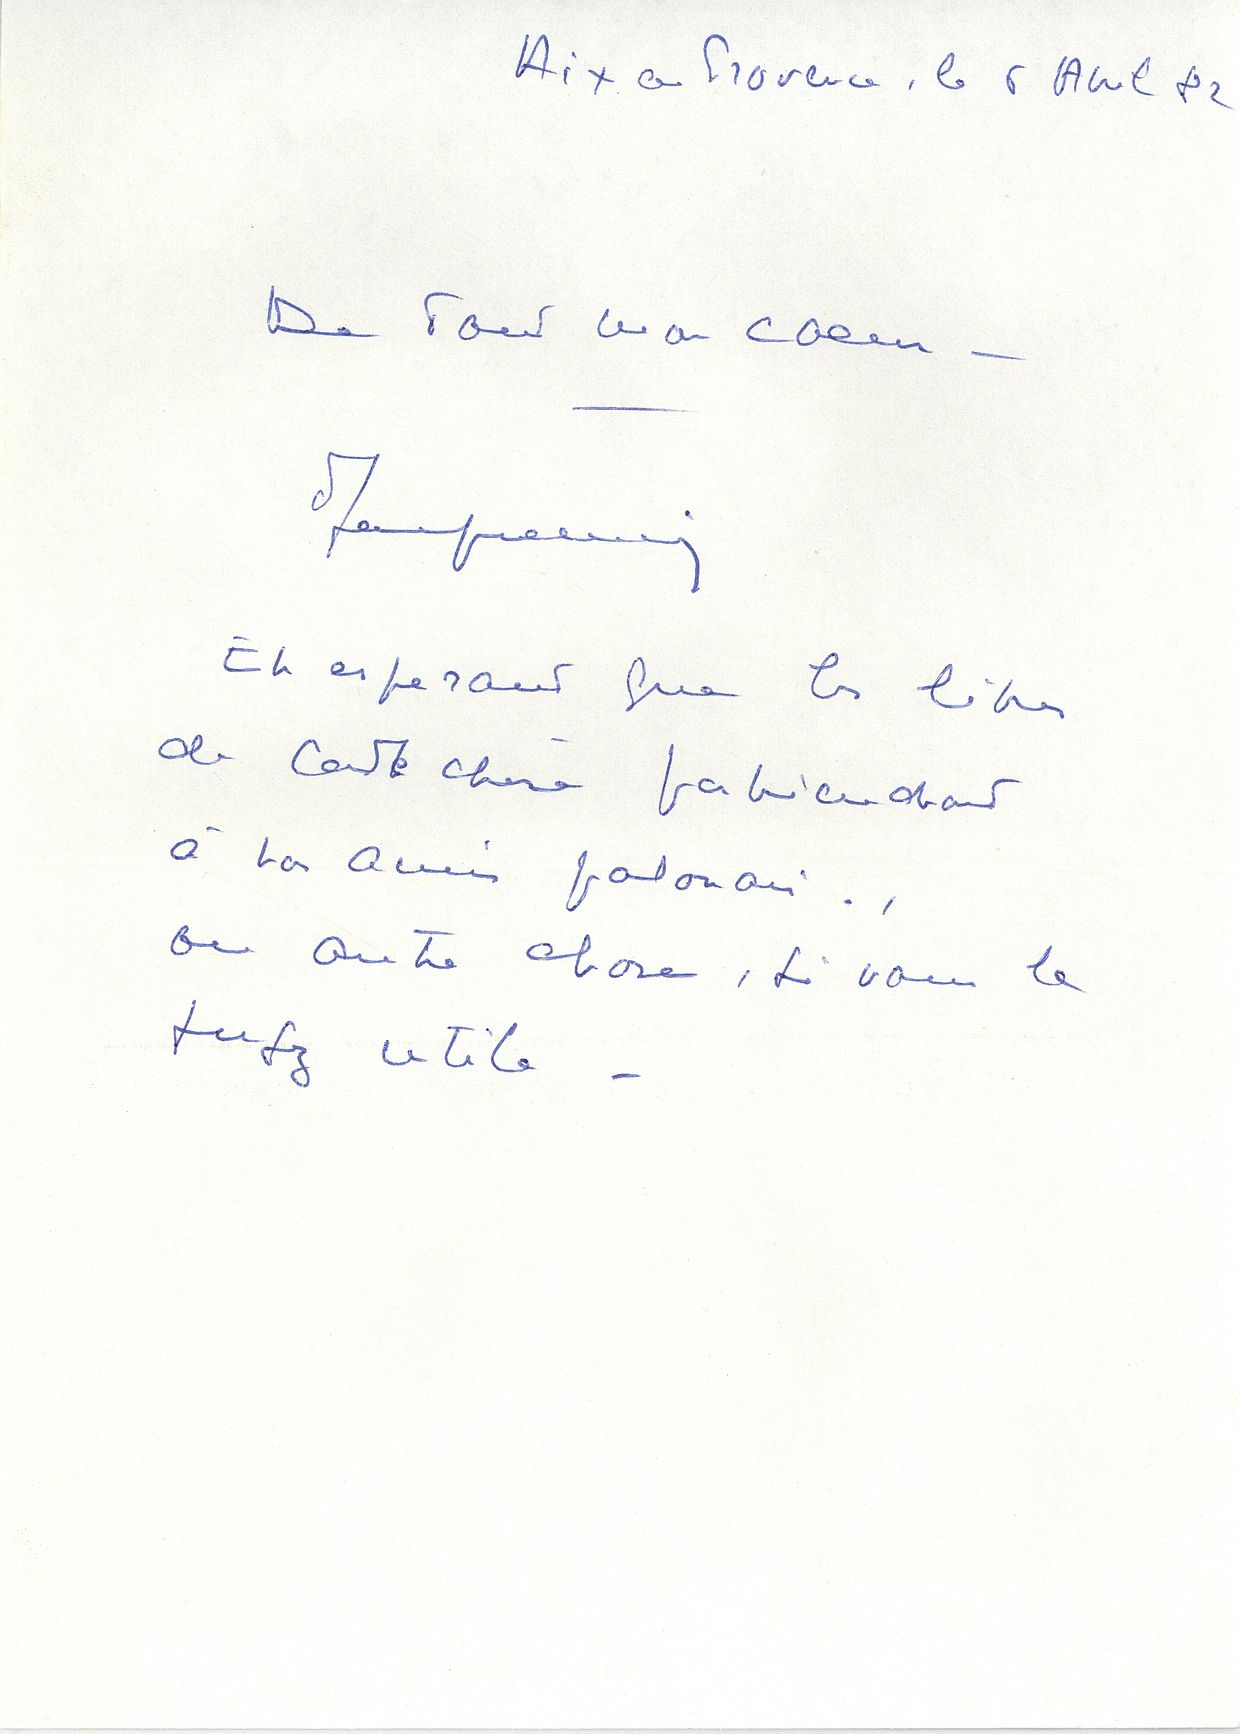 Aix en Provence, le 6 Avril 82
De tout mon coeur -
En espérant que les livres
de cette chère parviendront
à vos amis polonais.,
ou autre chose, si vous le
jugez utile -